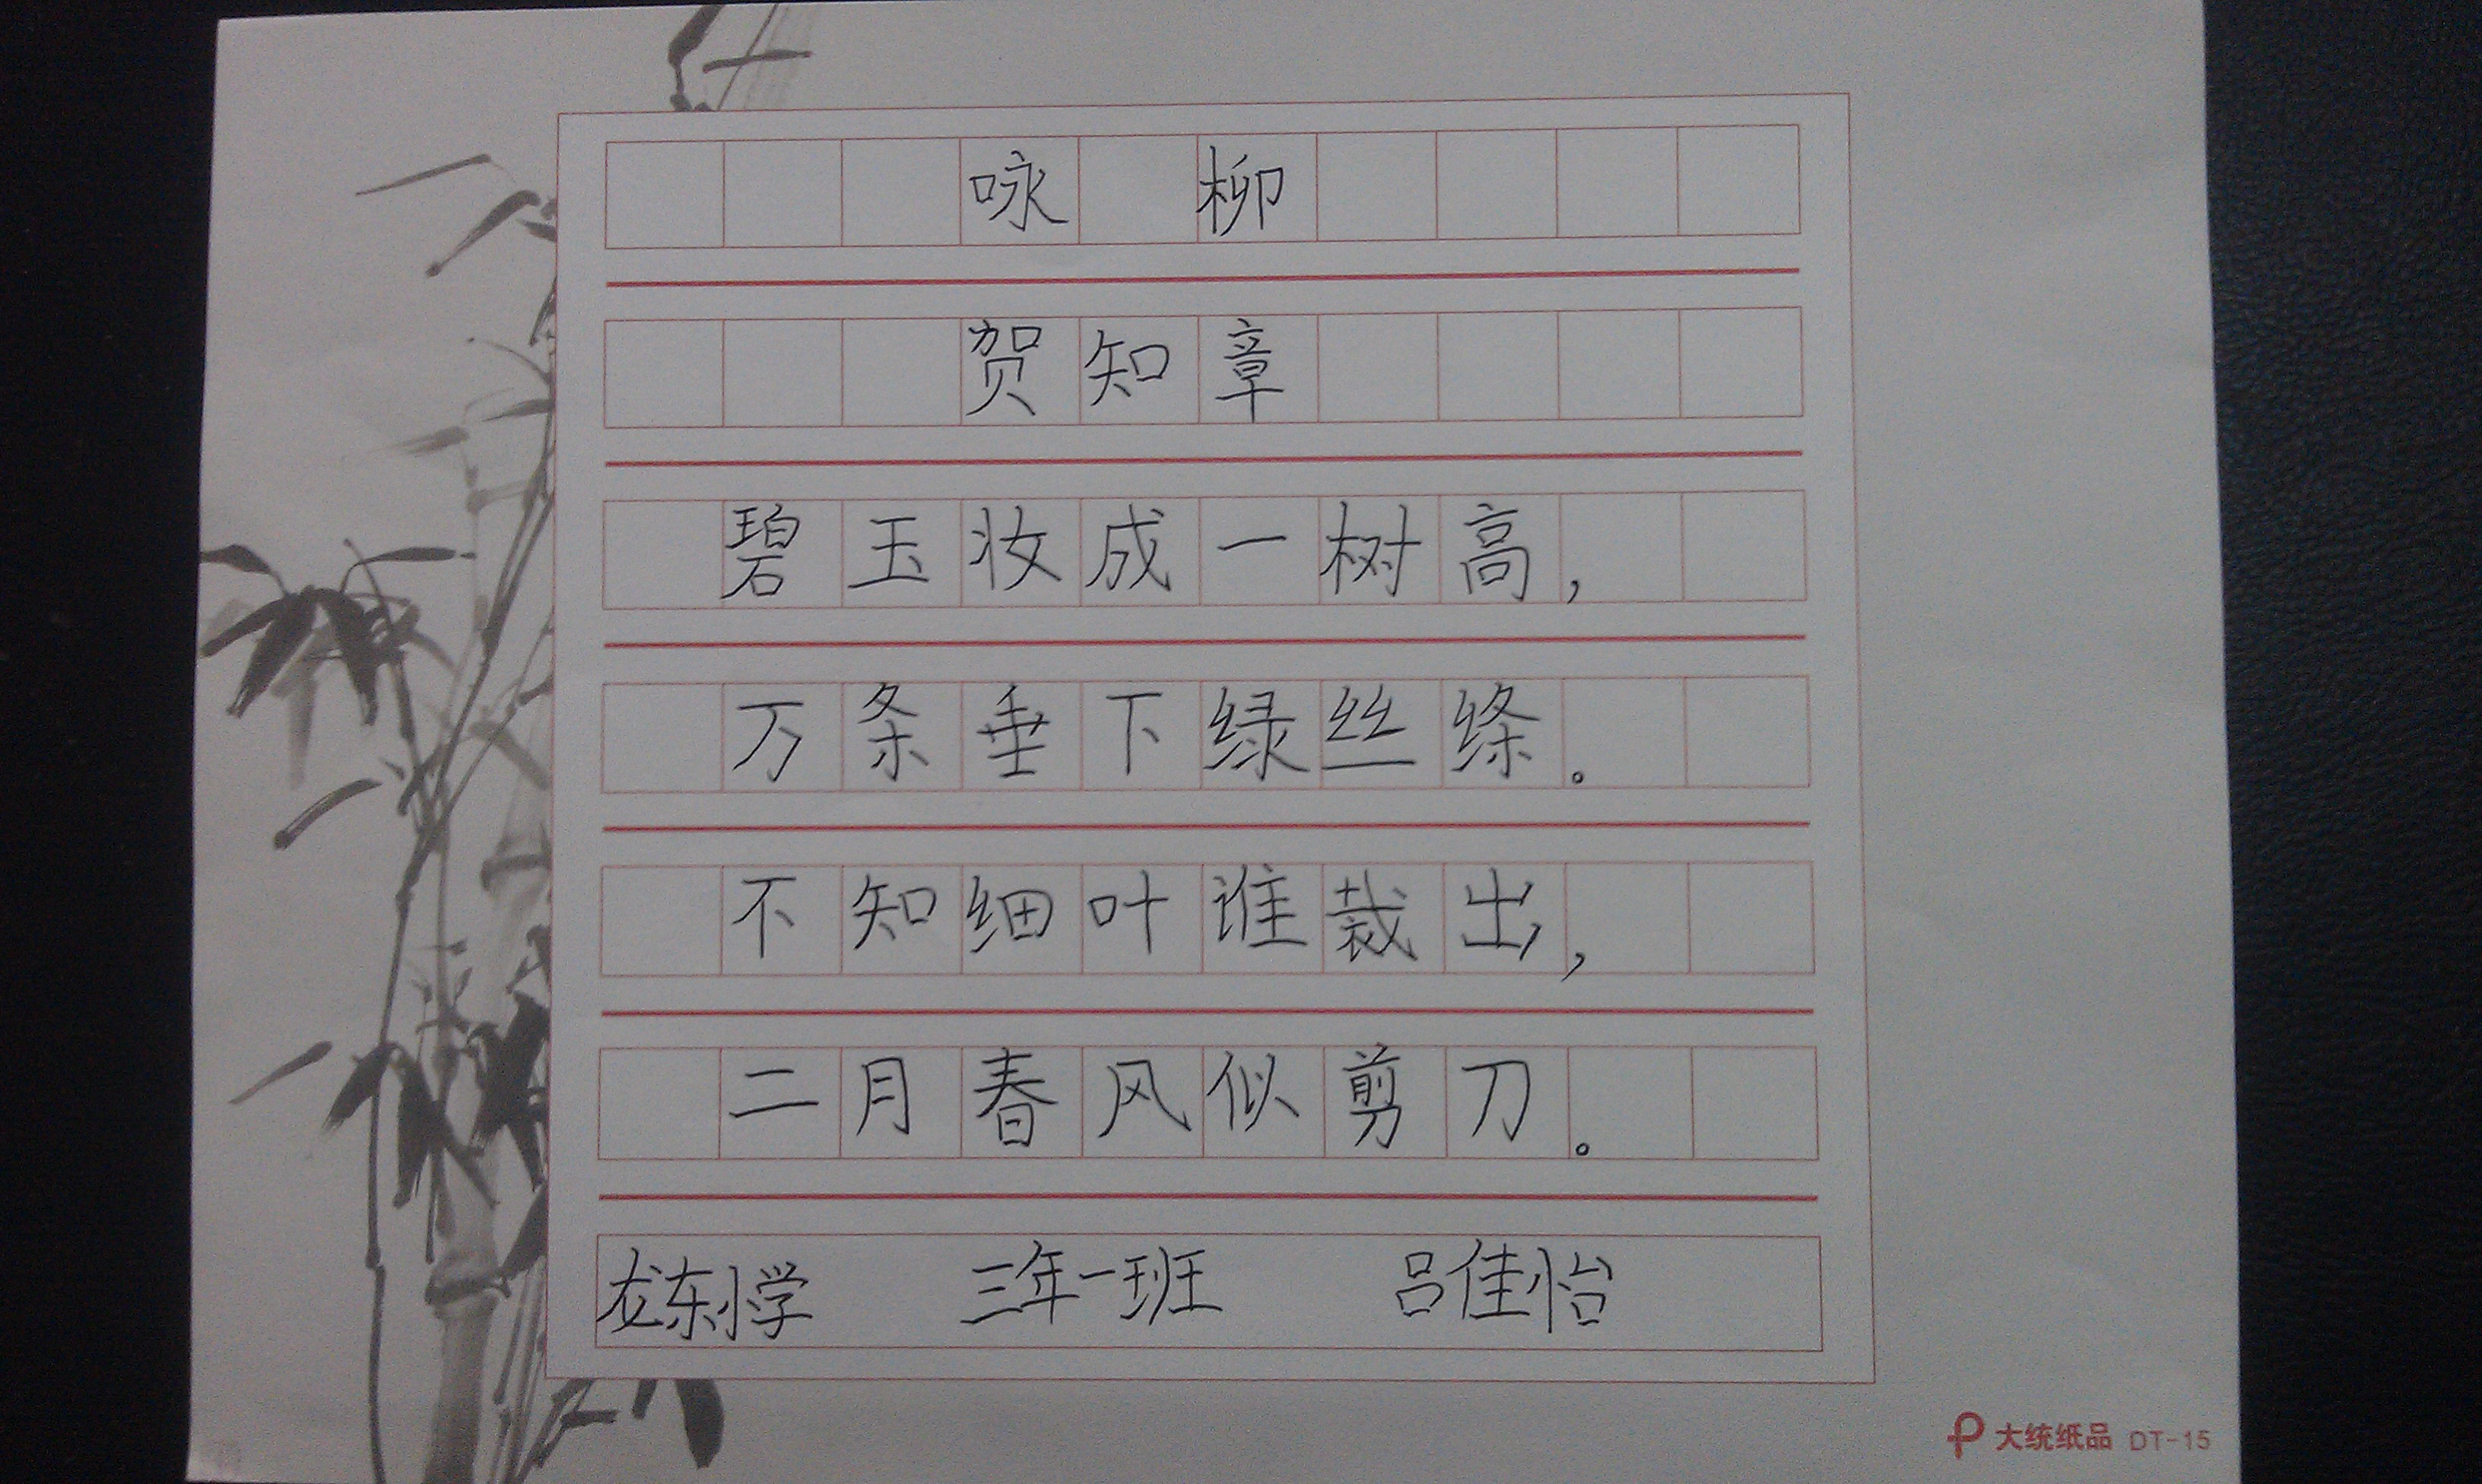 咏 柳
贺知章
碧玉妆成一树高，
万条垂下绿丝绦。
不知细叶谁裁出，
二月春风似剪刀。
龙东小学 三年一班 吕佳怡
大统纸品 DT-15